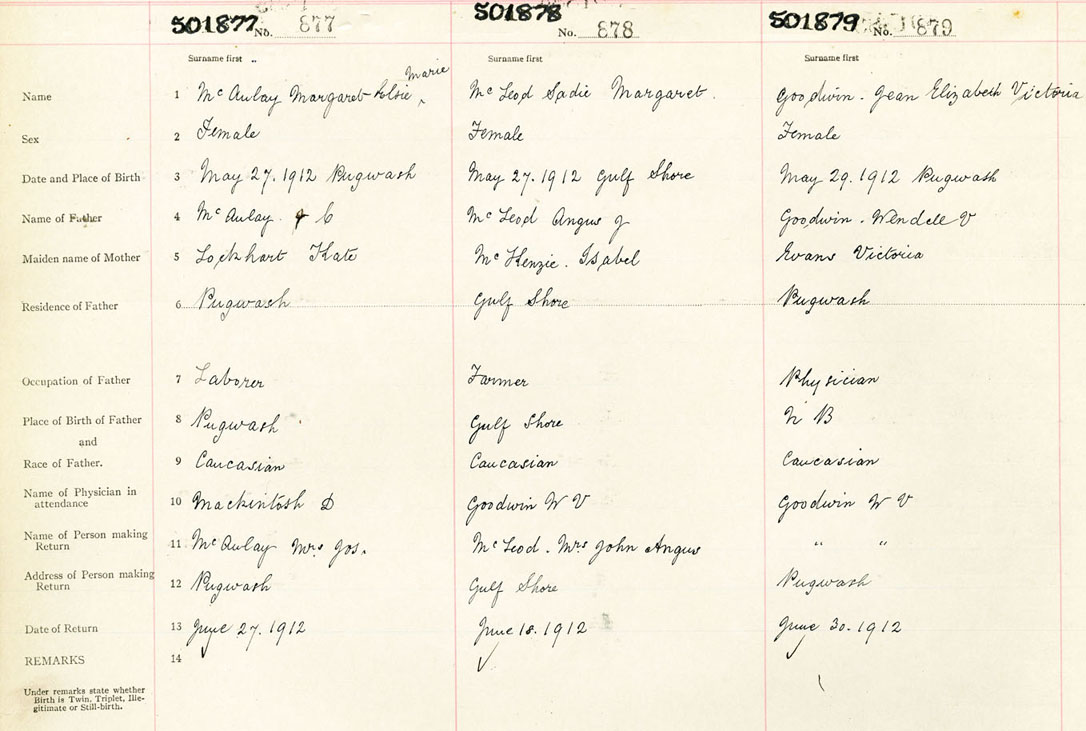 501877 No. 877 501878 No. 878 501879 No. 879
Surname first Surname first Surname first
Marie
Name 1 Mc Aulay Margaret Elsie ^ Mc Leod Sadie Margaret. Goodwin. Jean Elizabeth Victoria
Sex 2 Female Female Female
Date and Place of Birth 3 May 27. 1912 Pugwash May 27. 1912 Gulf Shore May 29. 1912 Pugwash
Name of Father 4 Mc Aulay. J C Mc Leod Angus J Goodwin. Wendell V
Maiden name of Mother 5 Lockhart Kate Mc Kenzie. Isabel Evans Victoria
Residence of Father 6 Pugwash Gulf Shore Pugwash
Occupation of Father 7 Laborer Farmer Physician
Place of Birth of Father 8 Pugwash Gulf Shore N B
and
Race of Father. 9 Caucasian Caucasian Caucasian
Name of Physician in
attendance 10 Mackintosh D Goodwin W V Goodwin W V
Name of Person making
Return 11 Mc Aulay Mrs Jos. Mc Leod. Mrs John Angus " "
Address of Person making
Return 12 Pugwash Gulf Shore Pugwash
Date of Return 13 June 27. 1912 June 18. 1912 June 30. 1912
REMARKS 14
Under remarks state whether
Birth is Twin, Triplet, Ille-
gitimate or Still-birth.